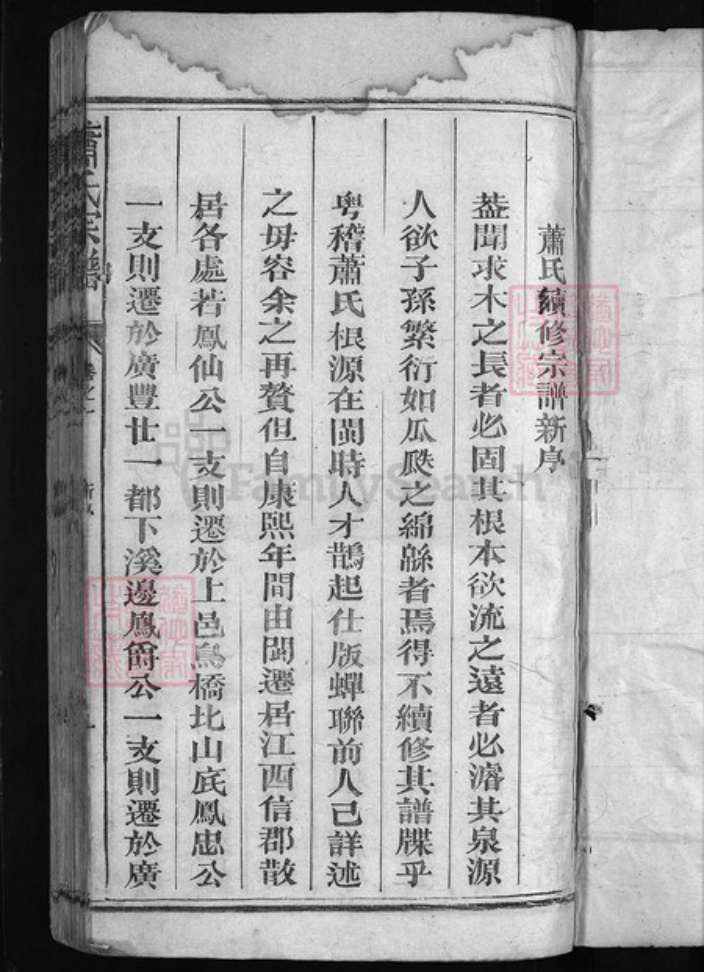 蕭氏續修宗譜新序
葢聞求木之長者必固其根本欲流之遠者必濬其泉源
人欲子孫繁衍如瓜瓞之綿緜者焉得不續修其譜牒乎
粤稽蕭氏根源在閩時人才鵲起仕版蟬聯前人己詳述
之毋容余之再贅但自康熙年間由閩遷居江西信郡散
居各處若鳳仙公一支則遷於上邑烏橋北山底鳳忠公
一支則遷於廣豐廿一都下溪邊鳳爵公一支則遷於廣
蕭氏宗譜
FamilySearch